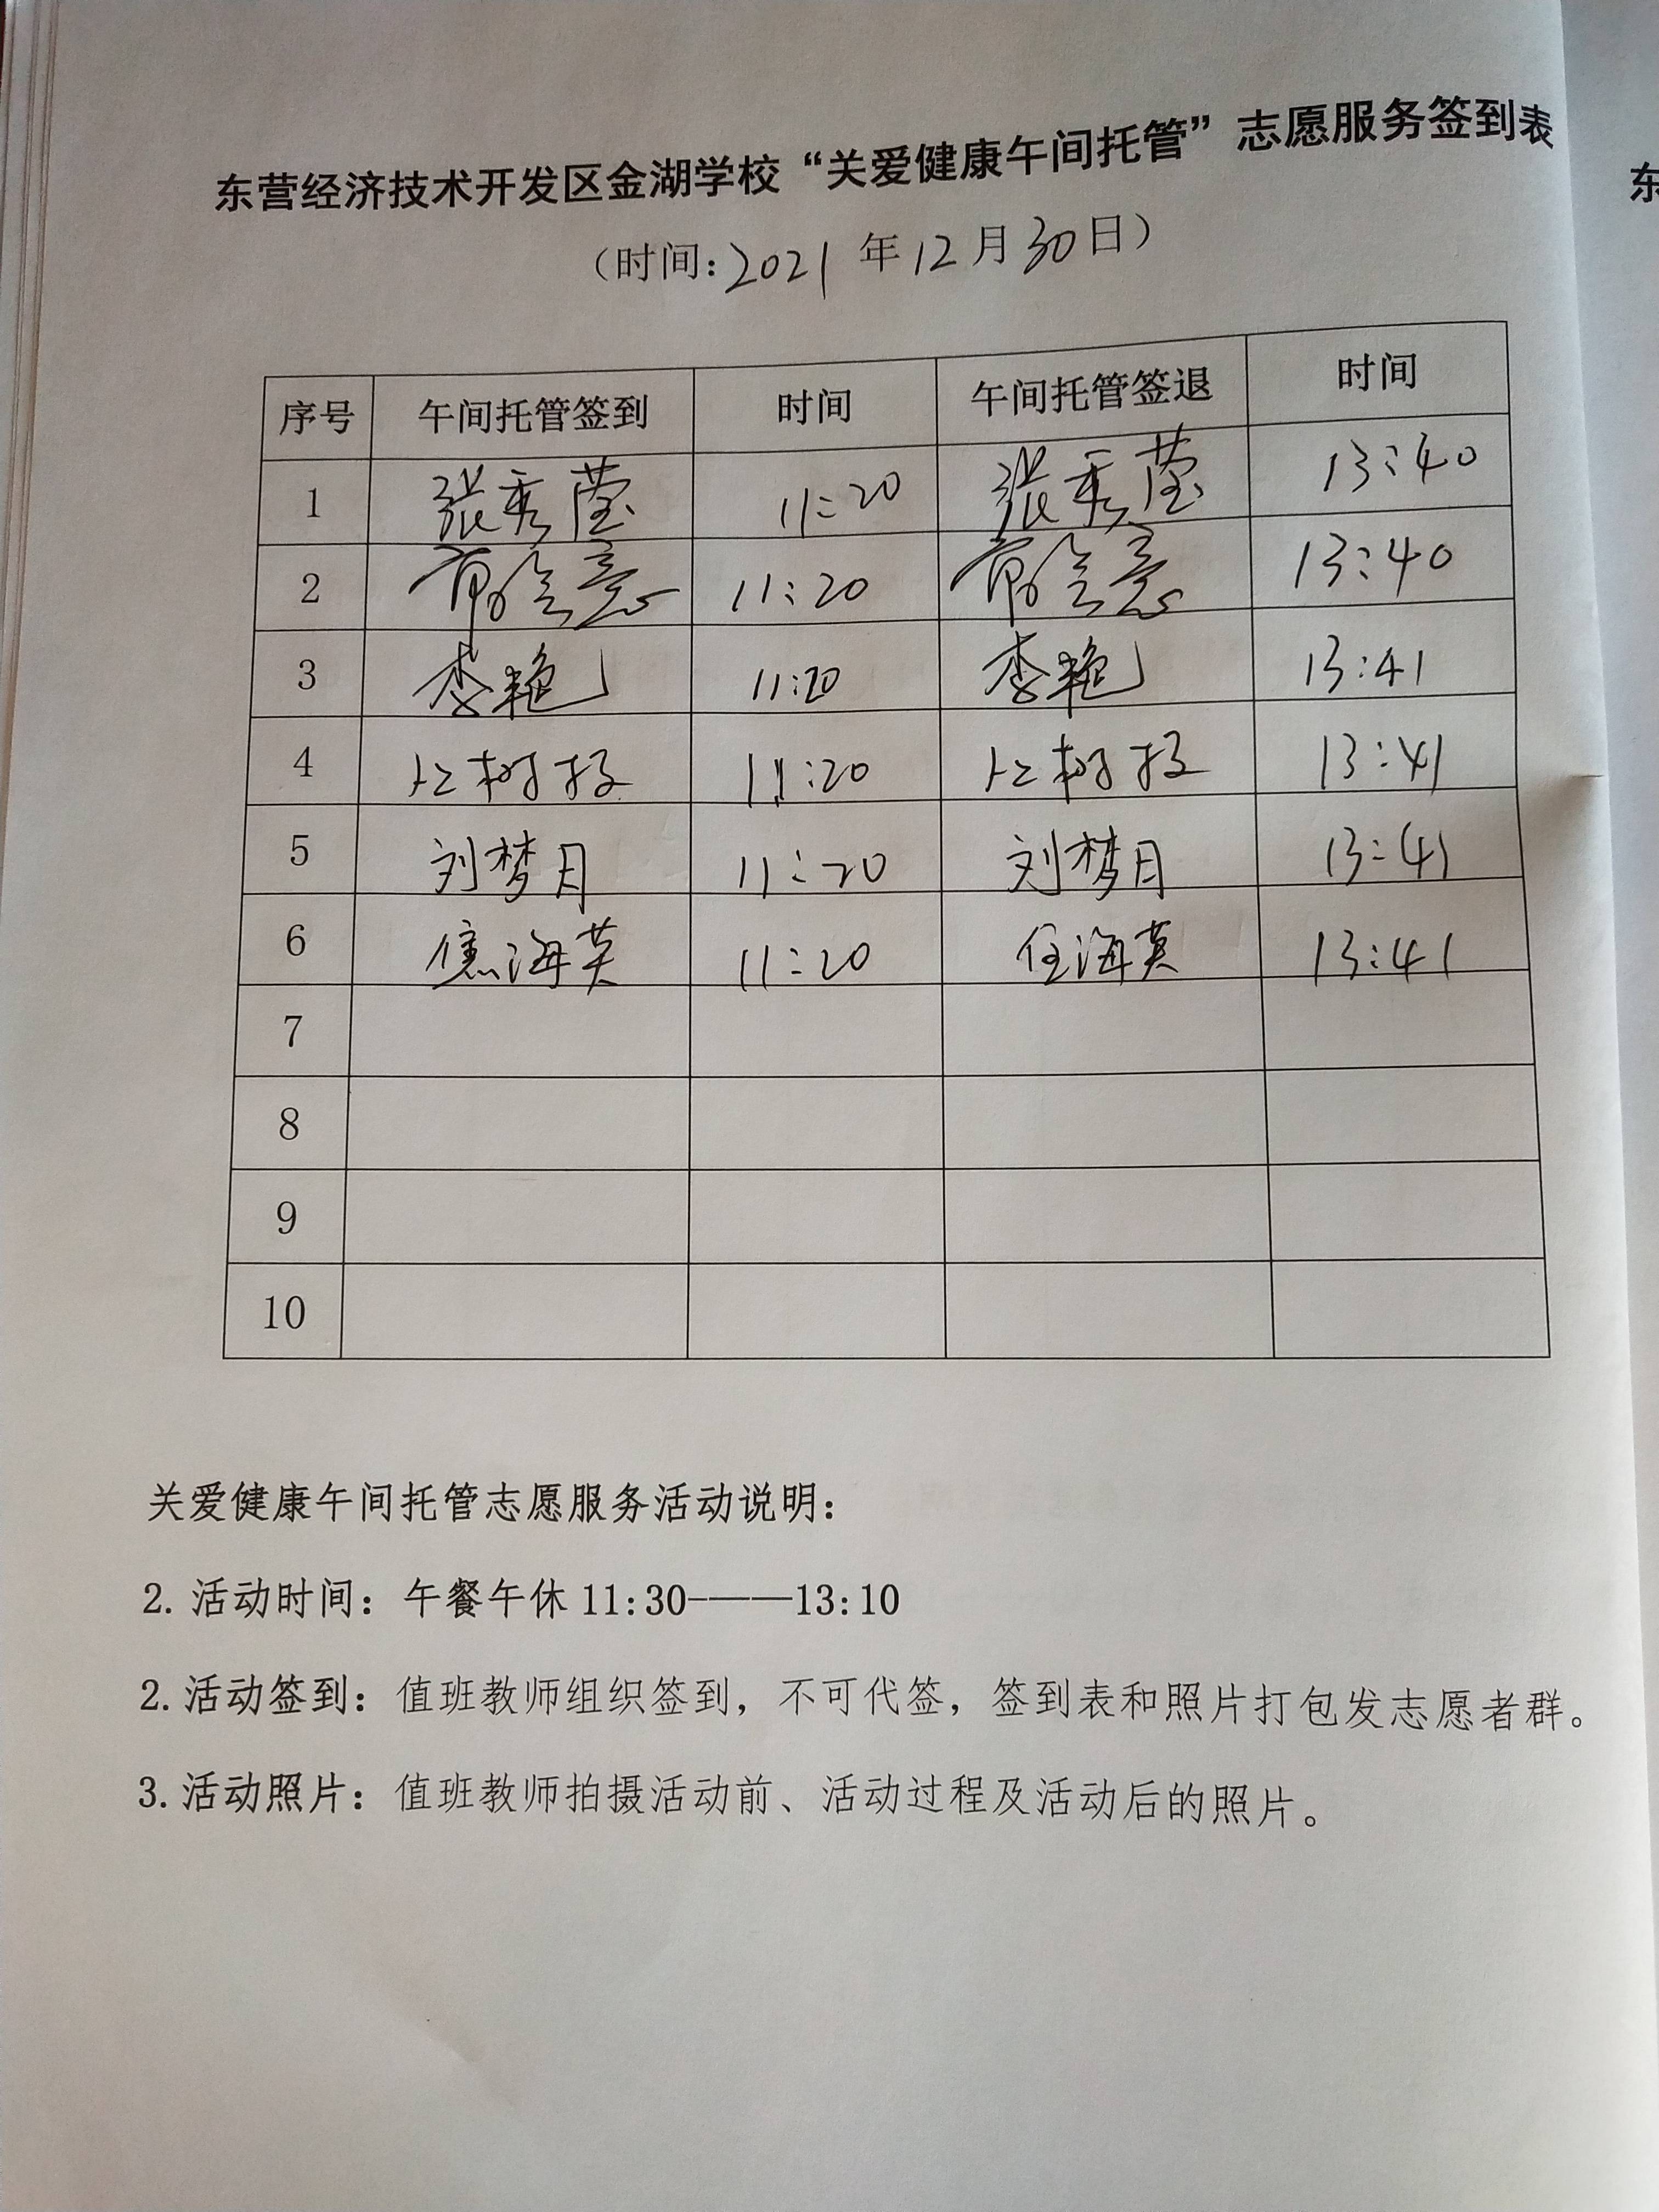 东营经济技术开发区金湖学校“关爱健康午间托管”志愿服务签到表
（时间：2021年12月30日）
东
序号 午间托管签到 时间 午间托管签退 时间
1 张秀莹 11:20 张秀莹 13:40
2 11:20 13:40
3 李艳 11:20 李艳 13:41
4 11:20 13:41
5 刘梦月 11:20 刘梦月 13:41
6 海英 11:20 海英 13:41
7
8
9
10
关爱健康午间托管志愿服务活动说明：
2. 活动时间：午餐午休 11:30-——13:10
2. 活动签到：值班教师组织签到，不可代签，签到表和照片打包发志愿者群。
3. 活动照片：值班教师拍摄活动前、活动过程及活动后的照片。